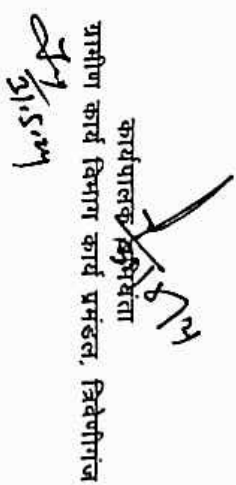 कार्यपालक अभियंता
ग्रामीण कार्य विभाग कार्य प्रमंडल, त्रिवेणीगंज
31.5.24